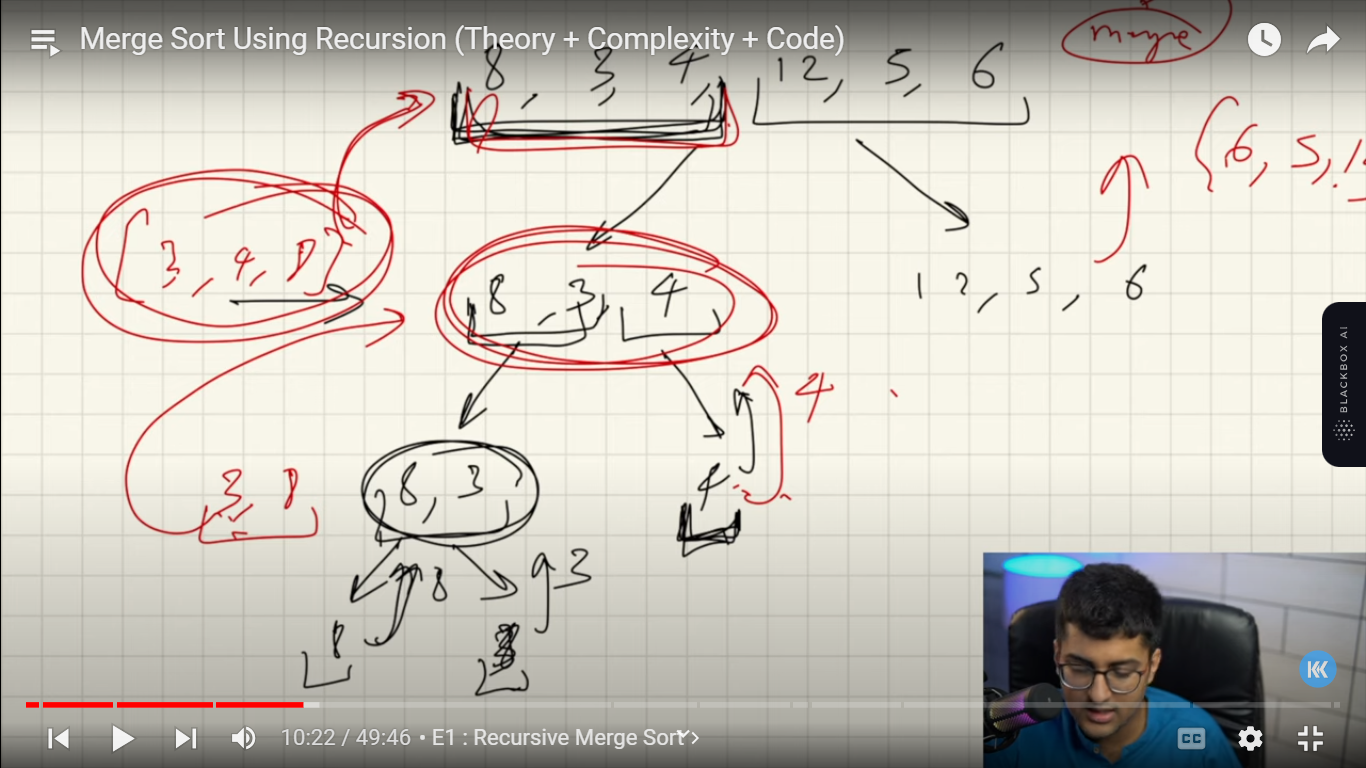 Merge Sort Using Recursion (Theory + Complexity + Code)
8, 3, 4, 12, 5, 6
{6, 5, 1
[3, 4, 8}
8, 3, 4
12, 5, 6
4
3, 8
8, 3
4
8
3
8
3
BLACKBOX AI
10:22 / 49:46 • E1 : Recursive Merge Sort
CC